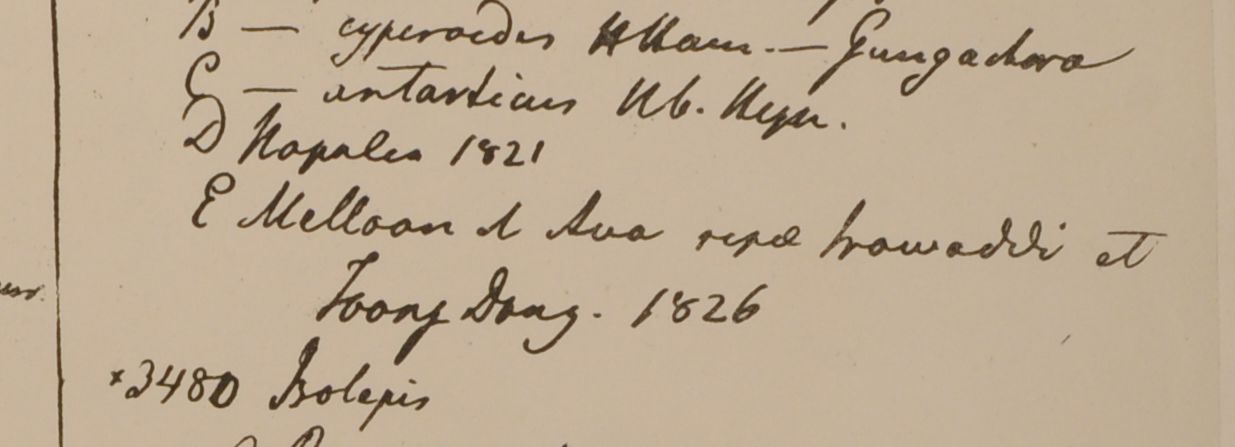 B — cyperoides H Ham. — Gungachora
C — antarticus Hb. Heyn.
D Napalia 1821
E Melloon & Ava ripæ Irawaddi et
Toong Dong. 1826
×3480 Isolepis